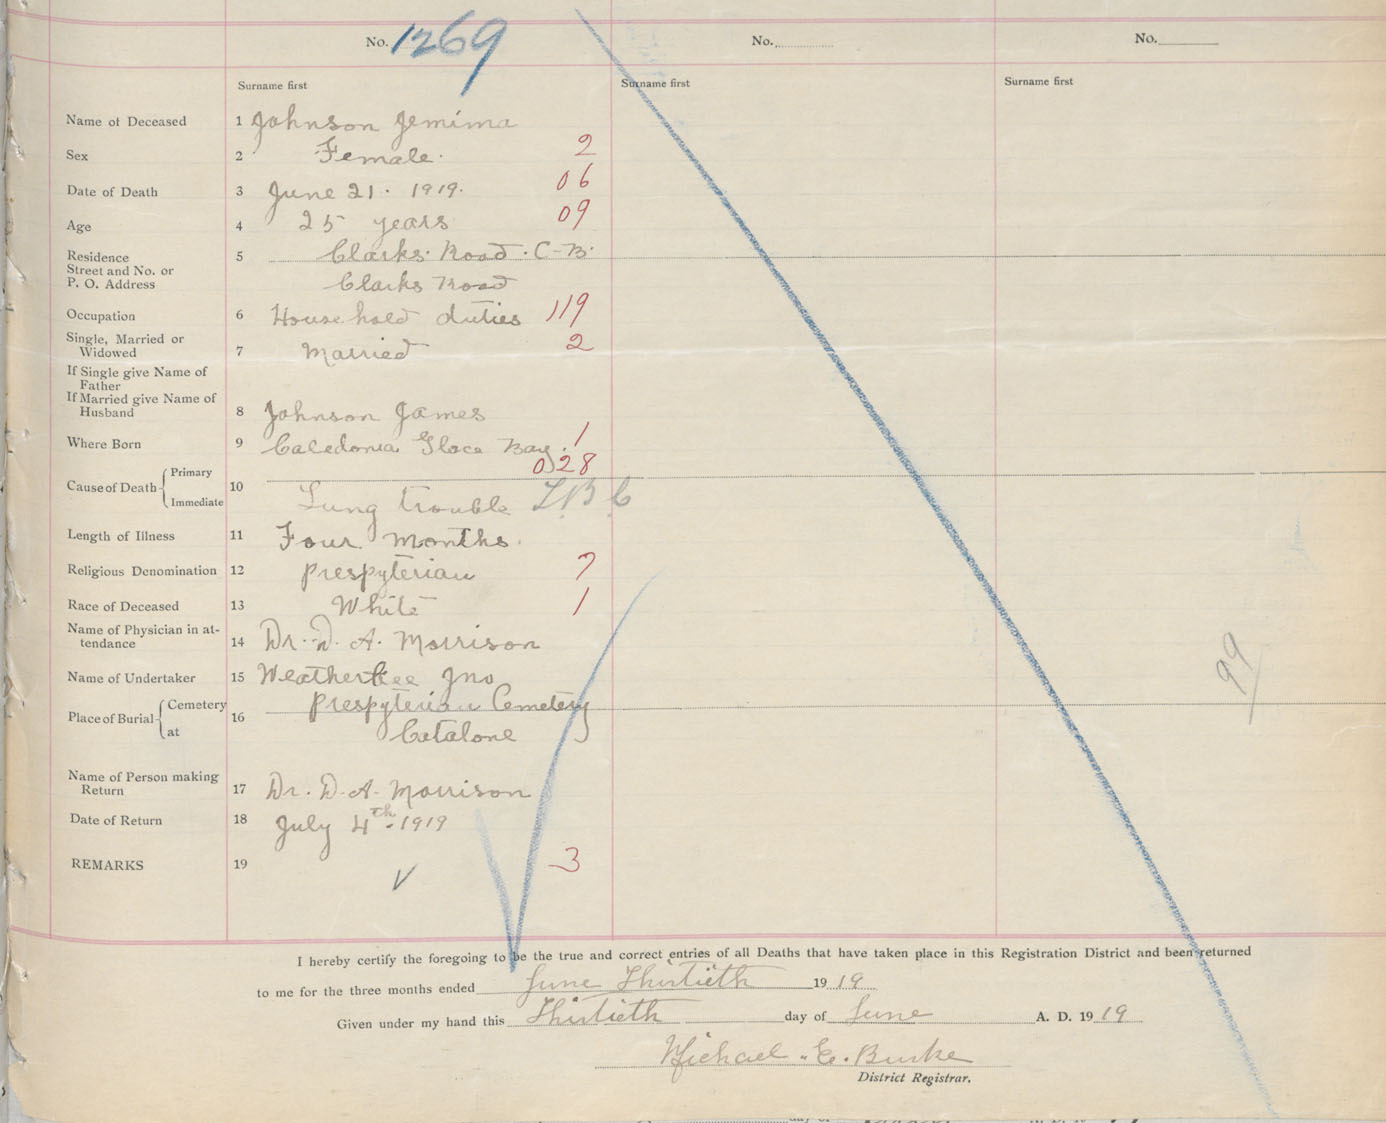 No. 1269 No. No.
Surname first Surname first Surname first
Name of Deceased 1 Johnson Jemima
Sex 2 Female. 2
Date of Death 3 June 21. 1919. 06
Age 4 25 years 09
Residence 5 Clarks. Road. C-B.
Street and No. or
P. O. Address Clarks Road
Occupation 6 Household duties 119
Single, Married or
Widowed 7 Married 2
If Single give Name of
Father
If Married give Name of
Husband 8 Johnson James
Where Born 9 Caledonia Glace Bay. 1
028
Cause of Death Primary 10
Immediate Lung trouble T.B.C
Length of Illness 11 Four Months.
Religious Denomination 12 Prespyterian 7
Race of Deceased 13 White 1
Name of Physician in at-
tendance 14 Dr. D. A. Morrison
Name of Undertaker 15 Weatherbee Jno
Place of Burial Cemetery 16 Prespyterian Cemetery
at Catalone
Name of Person making
Return 17 Dr. D. A. Morrison
Date of Return 18 July 4th. 1919
REMARKS 19 3
99
I hereby certify the foregoing to be the true and correct entries of all Deaths that have taken place in this Registration District and been returned
to me for the three months ended June Thirtieth 1919
Given under my hand this Thirtieth day of June A. D. 1919
Michael. E. Burke
District Registrar.